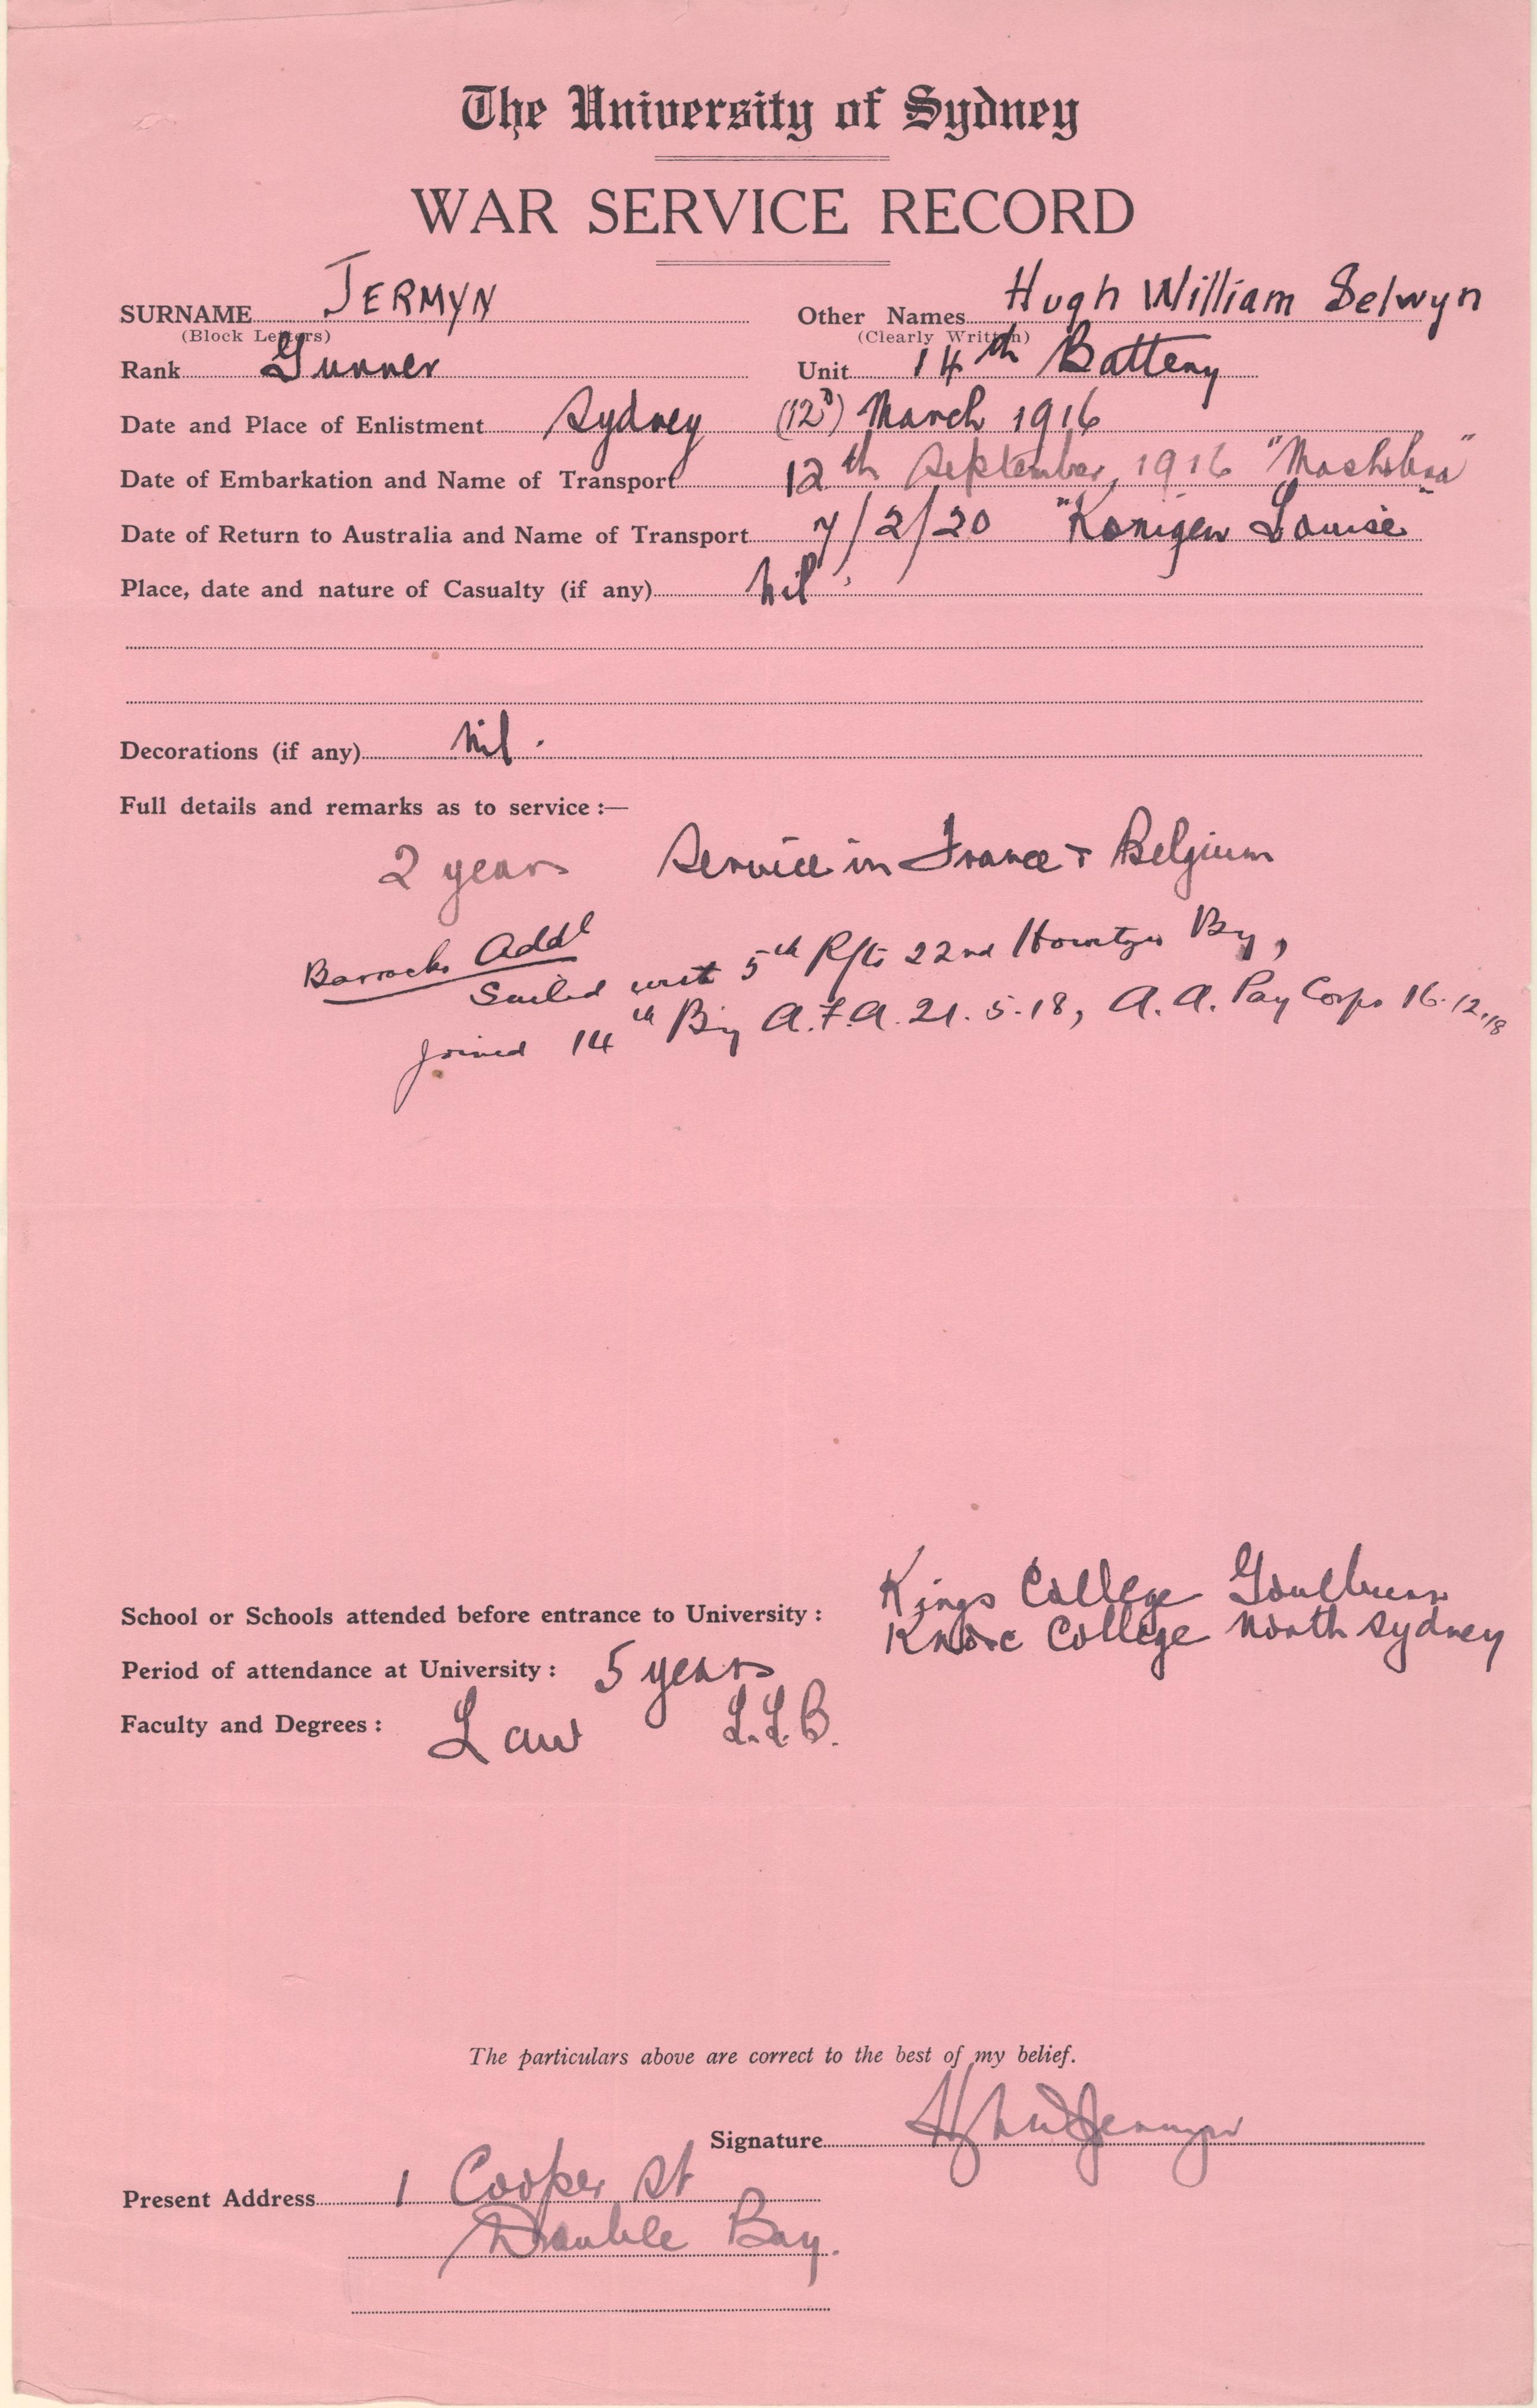 The University of Sydney
WAR SERVICE RECORD
SURNAME JERMYN Other Names Hugh William Selwyn
(Block Letters) (Clearly Written)
Rank Gunner Unit 14th Battery
Date and Place of Enlistment Sydney (12?) March 1916
Date of Embarkation and Name of Transport 12th September, 1916 "Mashobra"
Date of Return to Australia and Name of Transport 7/2/20 "Konigen Louise"
Place, date and nature of Casualty (if any) Nil.
Decorations (if any) Nil.
Full details and remarks as to service :—
2 years Service in France & Belgium
Barracks Addl
Sailed with 5th Rfts 22nd Howtzr By,
Joined 14th By A.F.A. 21.5.18, A.A. Pay Corps 16.12.18
School or Schools attended before entrance to University : Kings College Goulburn
Knox College North Sydney
Period of attendance at University : 5 years
Faculty and Degrees : Law L.L.B.
The particulars above are correct to the best of my belief.
Signature Hugh W S Jermyn
Present Address 1 Cooper St
Double Bay.